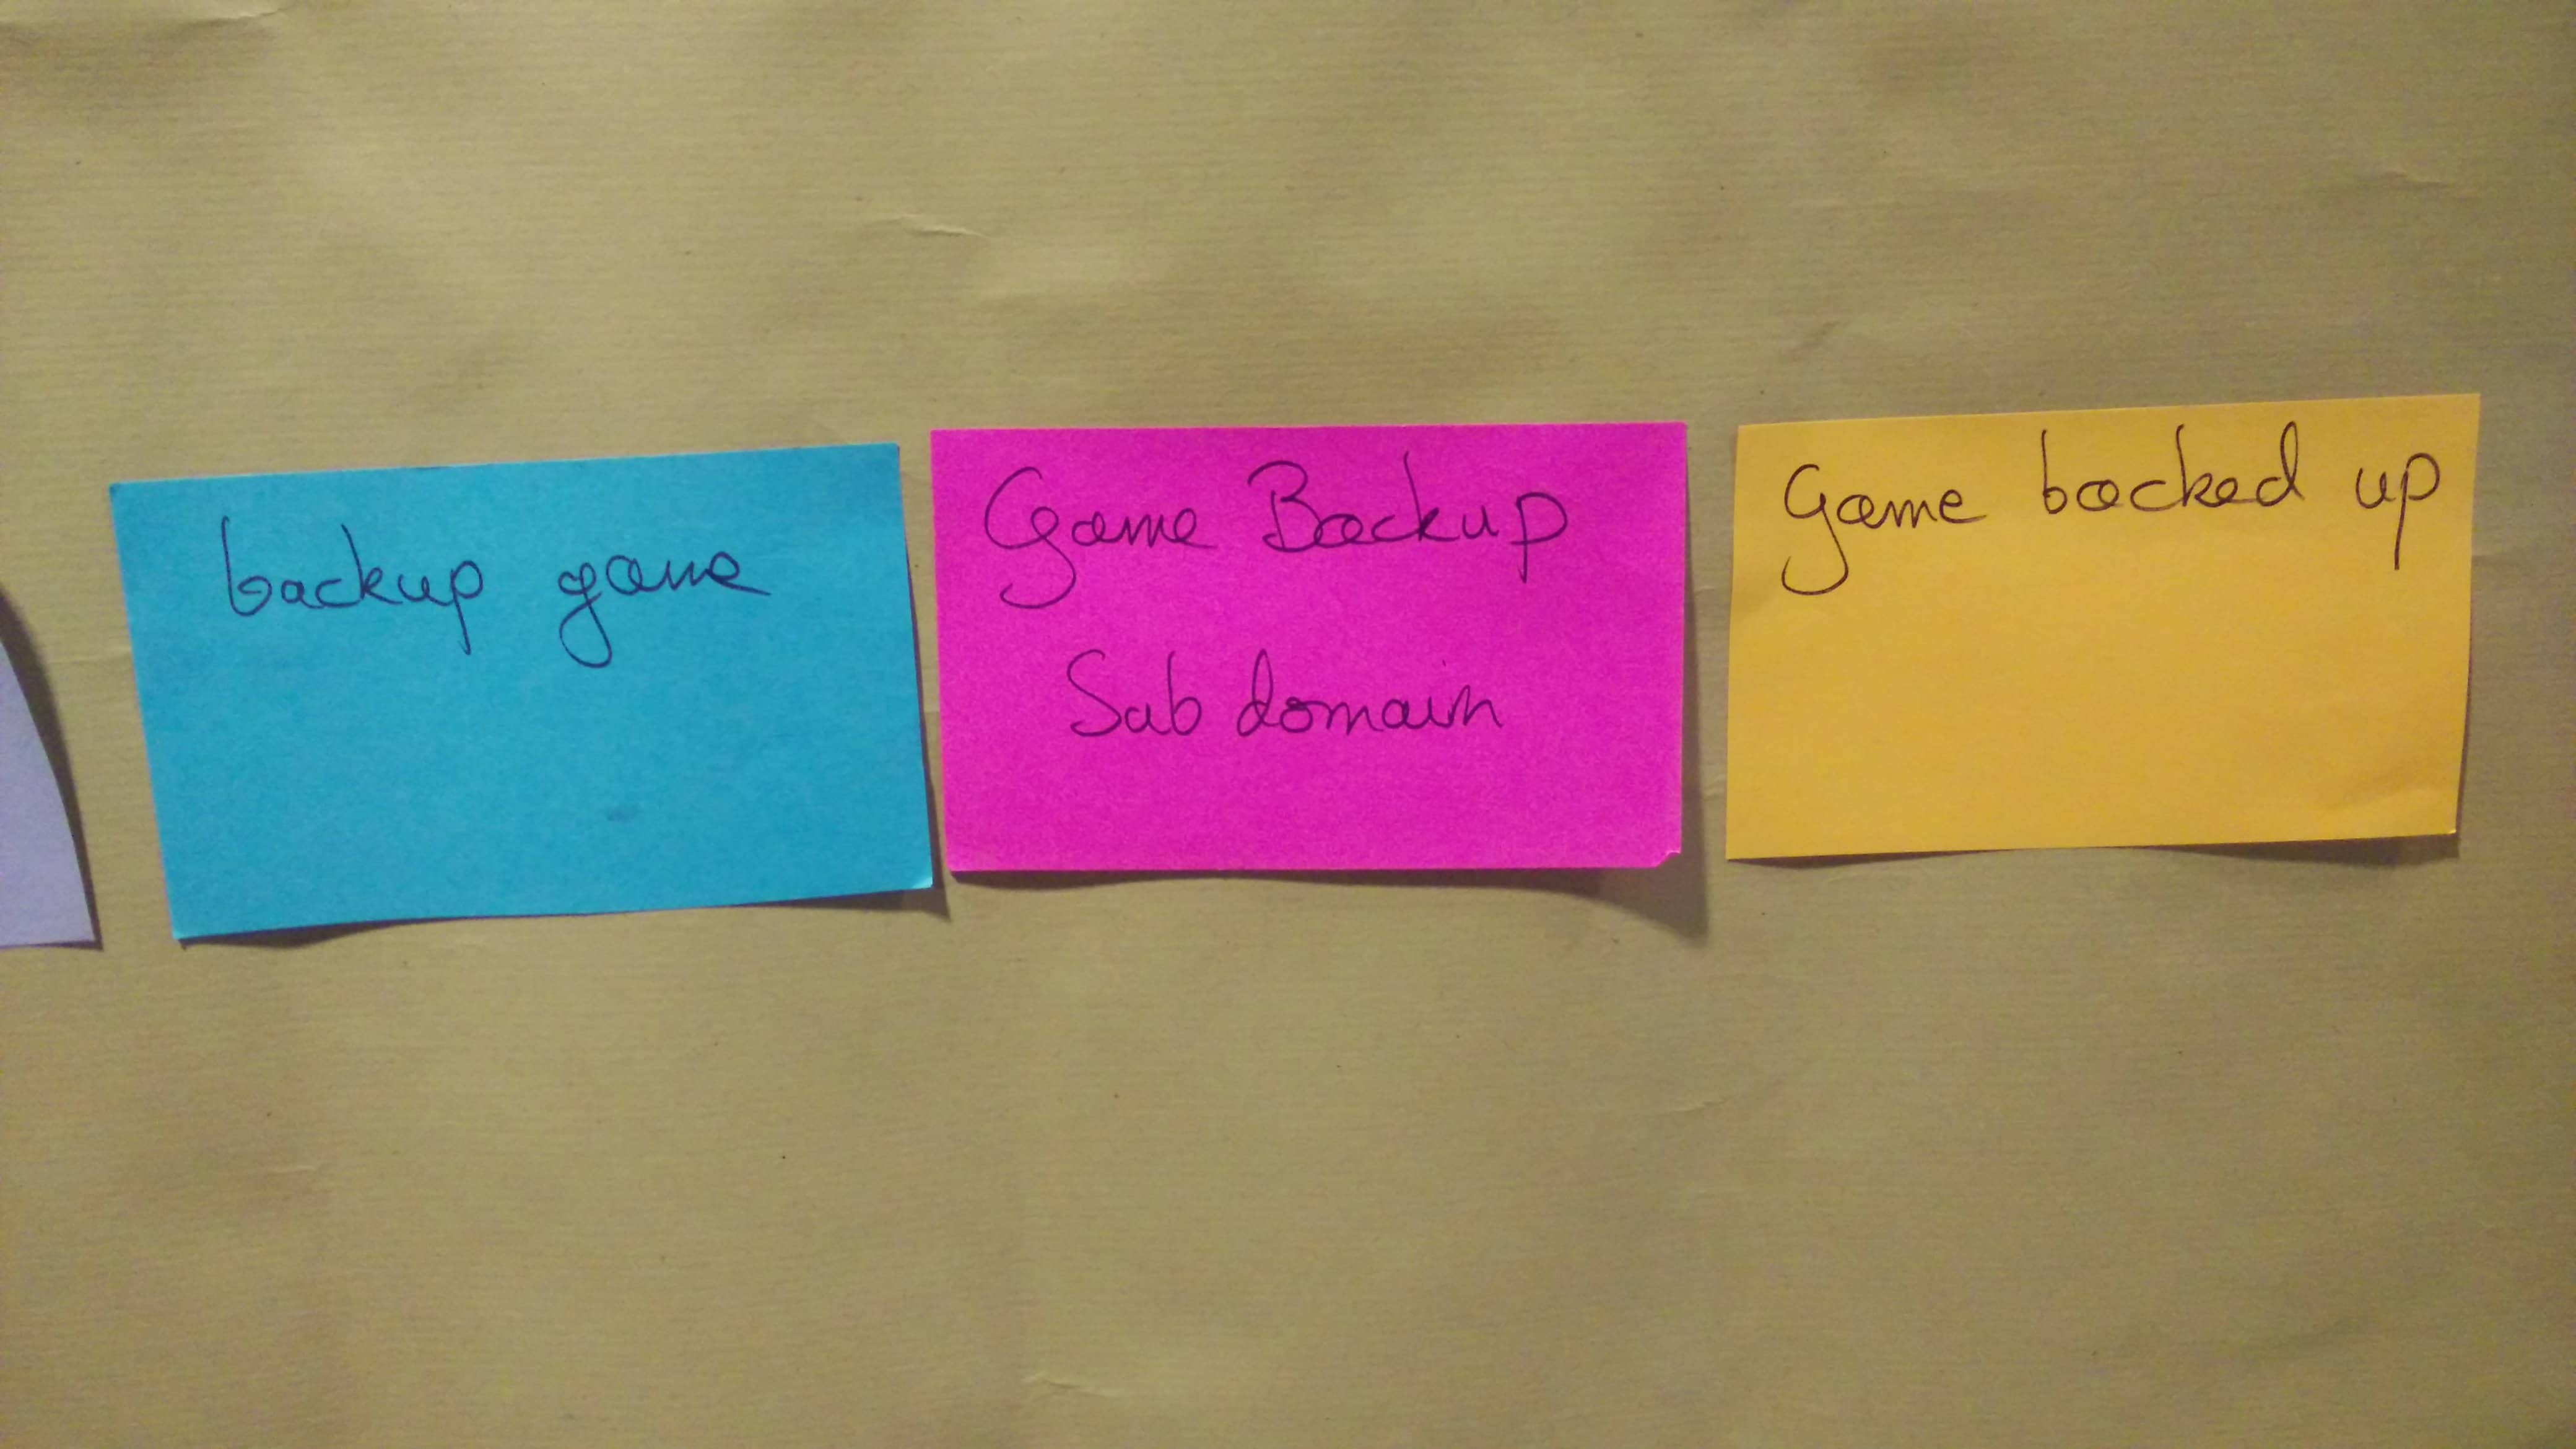 backup game
Game Backup
Sub domain
Game backed up